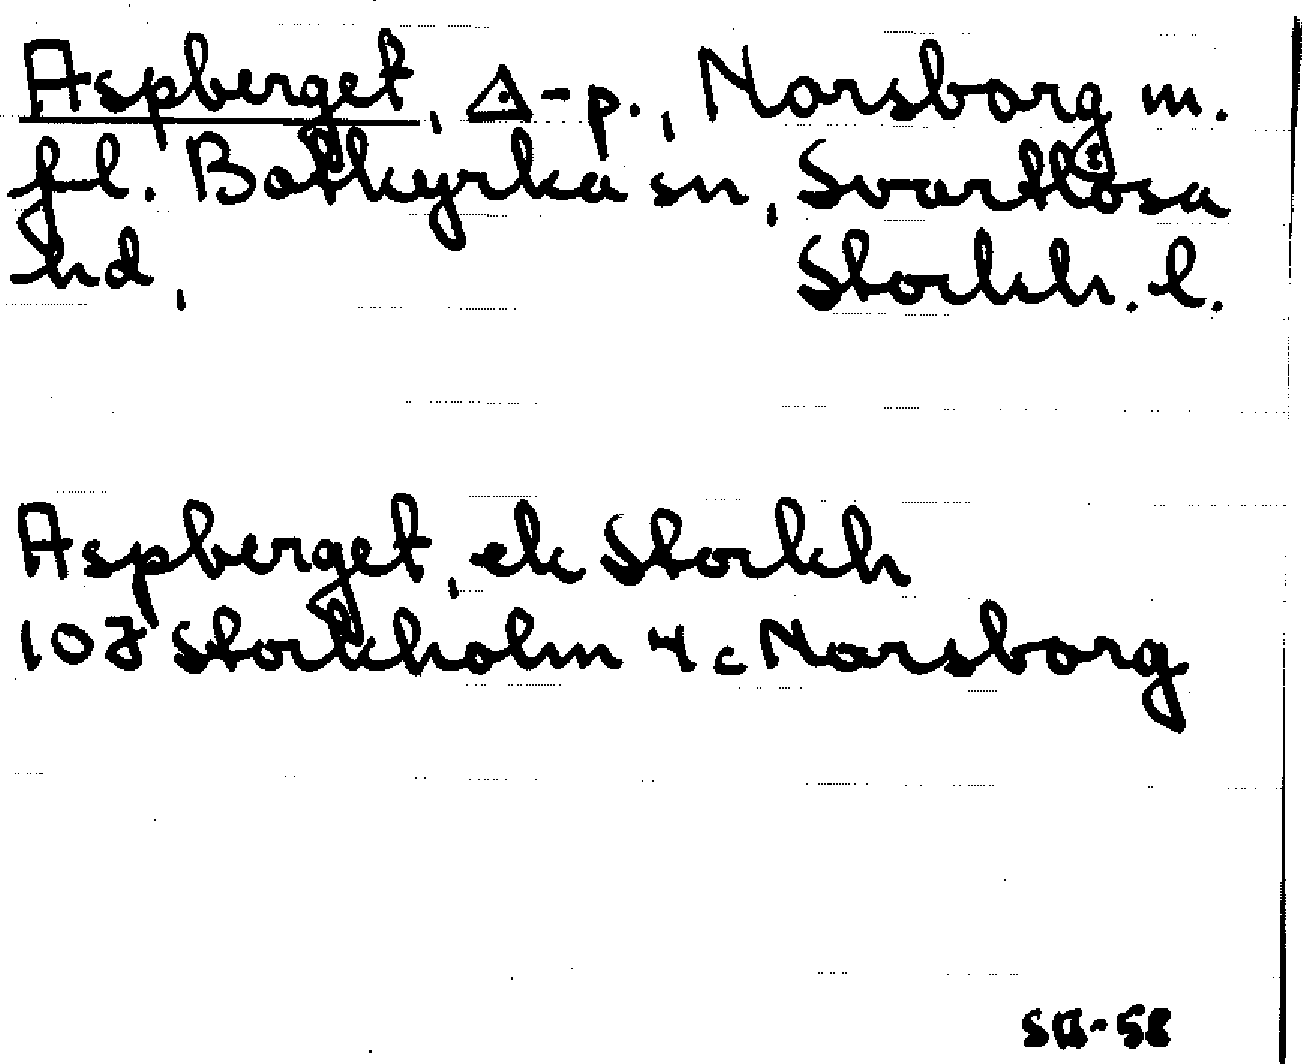 Aspberget, △-p., Norsborg m.
fl. Botkyrka sn, Svartlösa
hd, Stockh. l.
Aspberget, ek Stockh
10J Stockholm 4c Norsborg